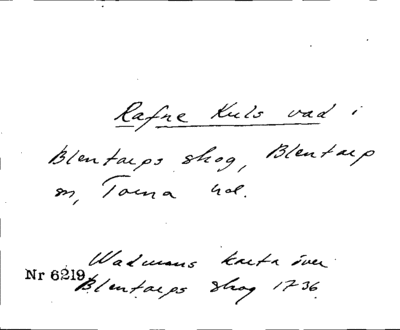 Rafne Kuls vad i
Blentarps skog, Blentarp
sn, Torna hd.
Wadmans karta över
Nr 6219
Blentarps skog 1736.